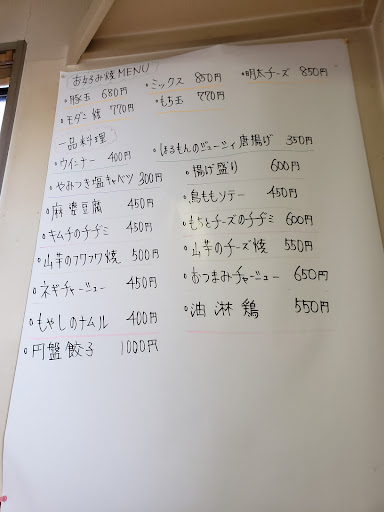 (お好み焼MENU)
・豚玉 680円
・ミックス 850円
・明太チーズ 850円
・モダン焼 770円
・もち玉 770円
一品料理)
・ウインナー 400円
・ほるもんのジューシィ唐揚げ 350円
・やみつき塩キャベツ 300円
・揚げ盛り 600円
・麻婆豆腐 450円
・鳥ももソテー 450円
・キムチのチヂミ 450円
・もちとチーズのチヂミ 600円
・山芋のフワフワ焼 500円
・山芋のチーズ焼 550円
・ネギチャーシュー 450円
・おつまみチャーシュー 650円
・もやしのナムル 400円
・油淋鶏 550円
・円盤餃子 1000円